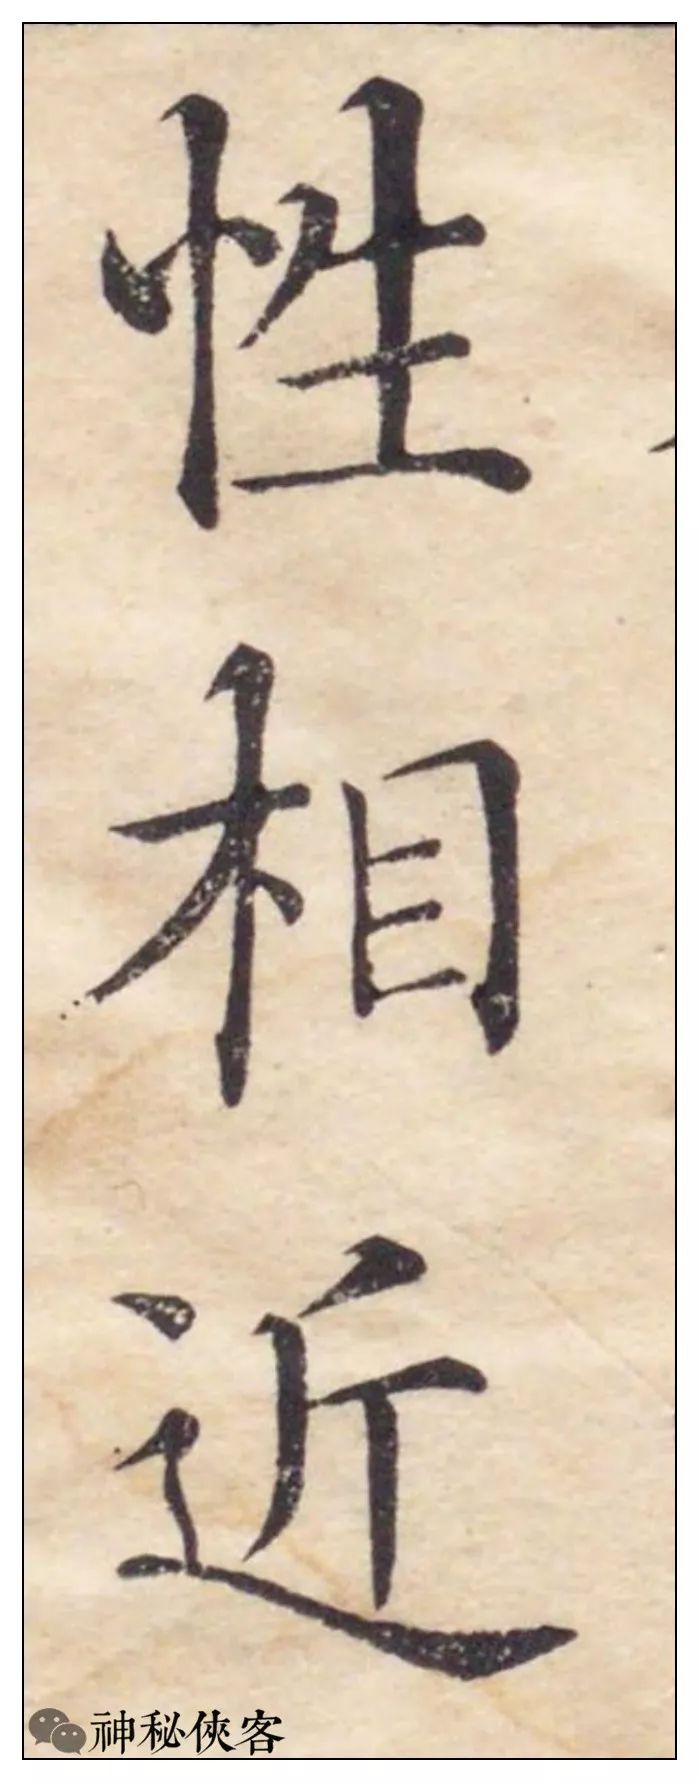 性相近
神秘俠客